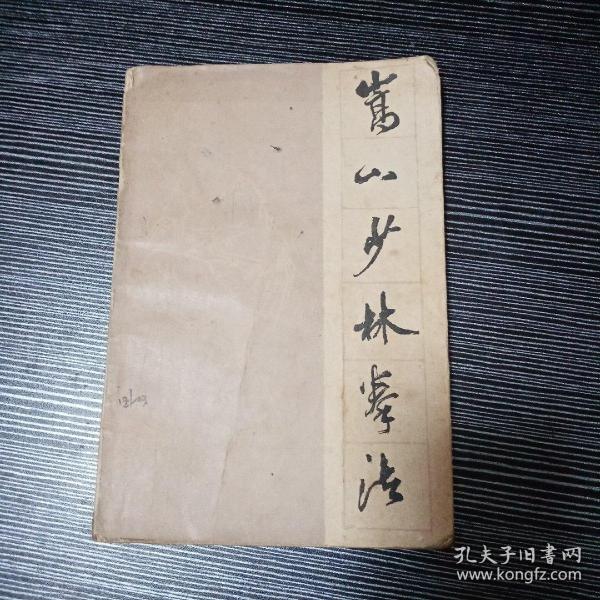 嵩山少林拳法
孔夫子旧書网
www.kongfz.com